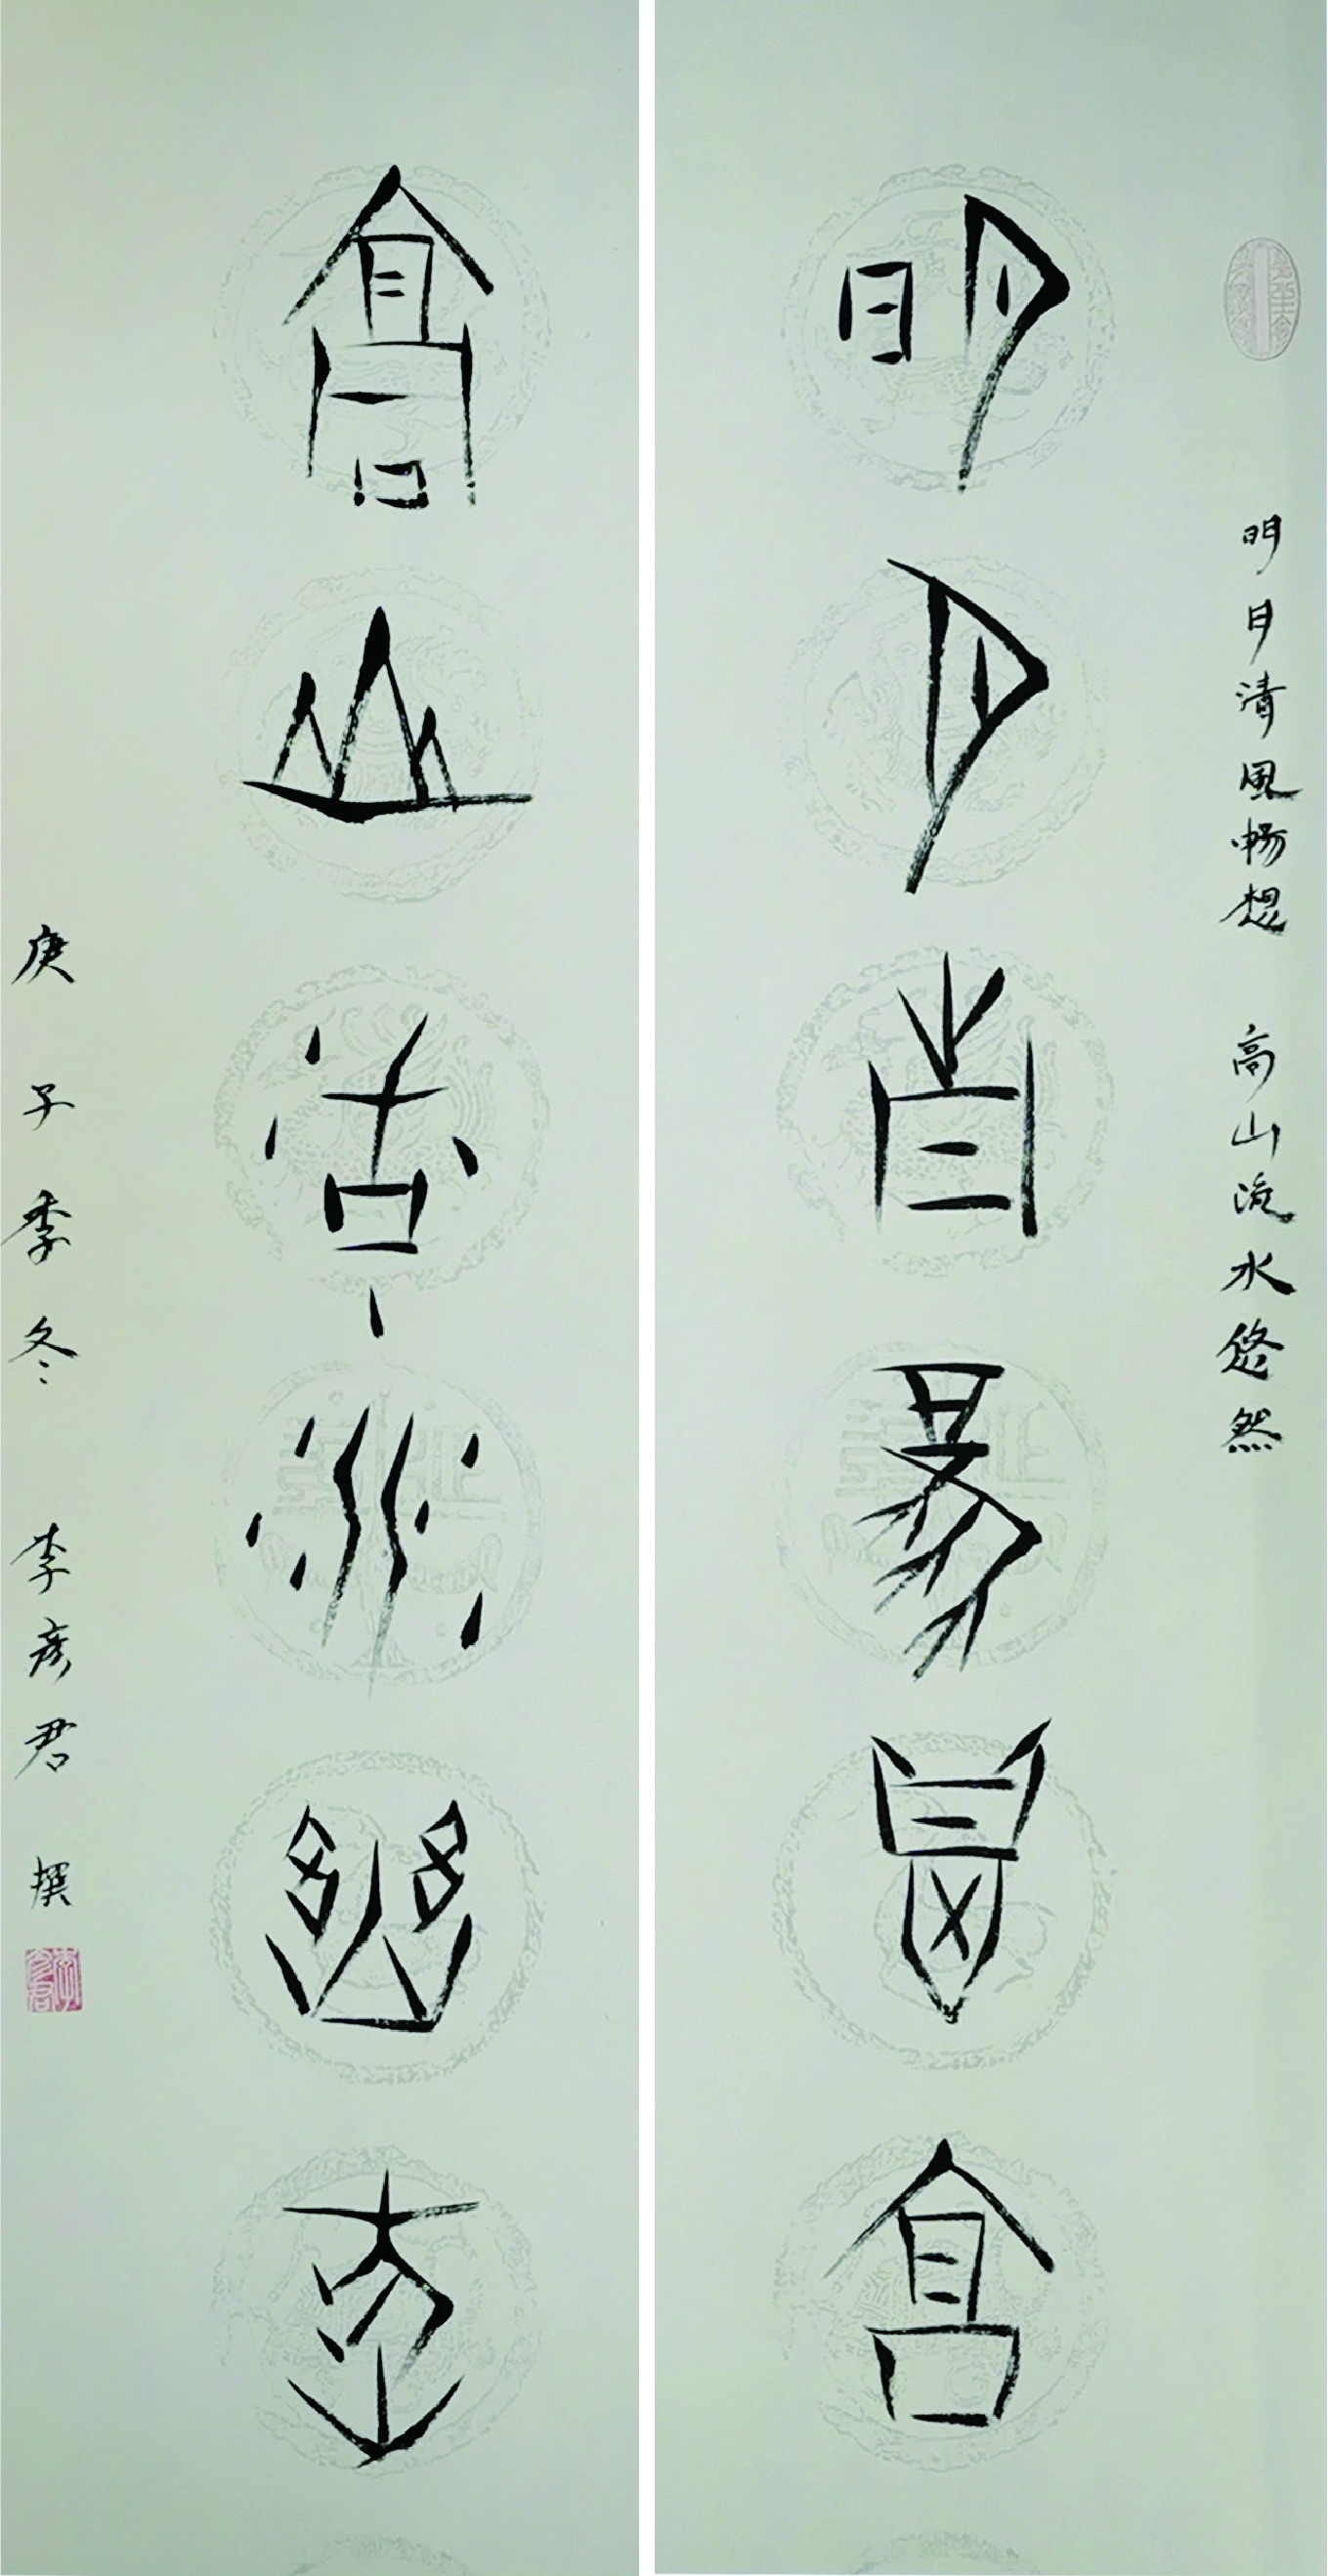 明月清風暢想 高山流水悠然
明月清風暢想
高山流水悠然
庚子季冬 李彦君 撰
李彦君